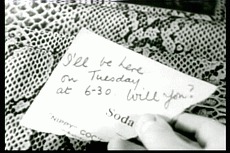 I'll be here
on Tuesday
at 6-30 Will you?
Soda
NIPPY COC